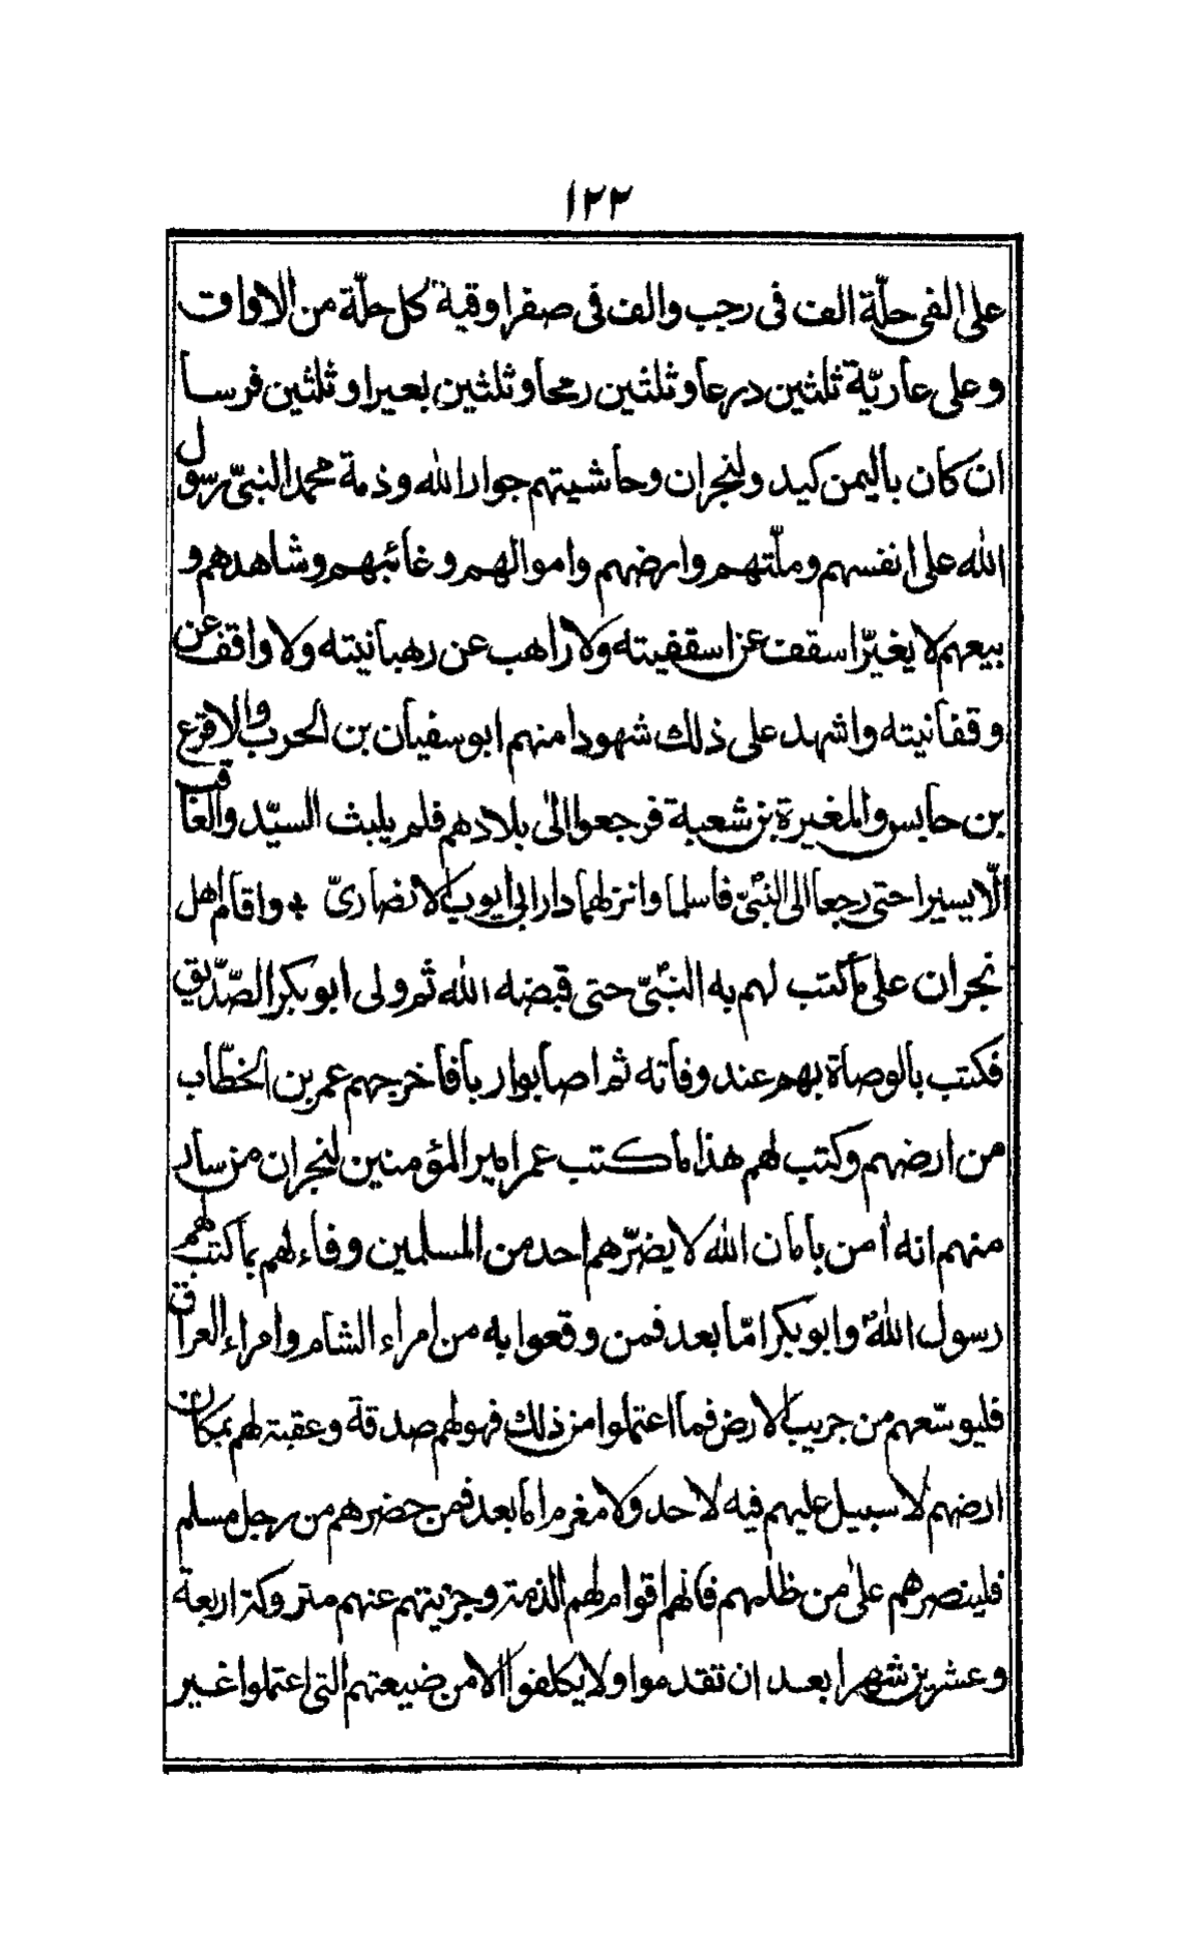 ١٢٢
على الفى حلّة الف فى رجب والف فى صفر اوقية كل حلّة من الاواق
وعلى عاريّة ثلثين درعا وثلثين رمحا وثلثين بعيرا وثلثين فرسا
ان كان باليمن كيد ولنجران وحاشيتهم جوار الله وذمة محمد النبىّ رسول
الله على انفسهم وملّتهم وارضهم واموالهم وغائبهم وشاهدهم و
بيعهم لا يغيّر اسقف عن اسقفيته ولا راهب عن رهبانيته ولا واقف عن
وقفانيته واشهد على ذلك شهودا منهم ابو سفيان بن الحرب والاقرع
بن حابس والمغيرة بن شعبة فرجعوا الى بلادهم فلم يلبث السيّد والعاقب
الّا يسيرا حتى رجعا الى النبىّ فاسلما وانزلهما دار ابى ايوب الانصارىّ ٭ واقام اهل
نجران على ما كتب لهم به النبىّ حتى قبضه الله ثم ولى ابو بكر الصّدّيق
فكتب بالوصاة بهم عند وفاته ثم اصابوا ربا فاخرجهم عمر بن الخطّاب
من ارضهم وكتب لهم هذا ما كتب عمر امير المؤمنين لنجران من سار
منهم انه أمن بامان الله لا يضرّهم احد من المسلمين وفاء لهم بما كتب لهم
رسول الله وابو بكر امّا بعد فمن وقعوا به من امراء الشام وامراء العراق
فليوسّعهم من جريب الارض فما اعتملوا من ذلك فهو لهم صدقة وعقبة لهم بمكان
ارضهم لا سبيل عليهم فيه لاحد ولا مغرم اما بعد فمن حضرهم من رجل مسلم
فلينصرهم على من ظلمهم فانهم اقوام لهم الذمة وجزيتهم عنهم متروكة اربعة
وعشرين شهرا بعد ان تقدموا ولا يكلفوا الا من ضيعتهم التى اعتملوا غير